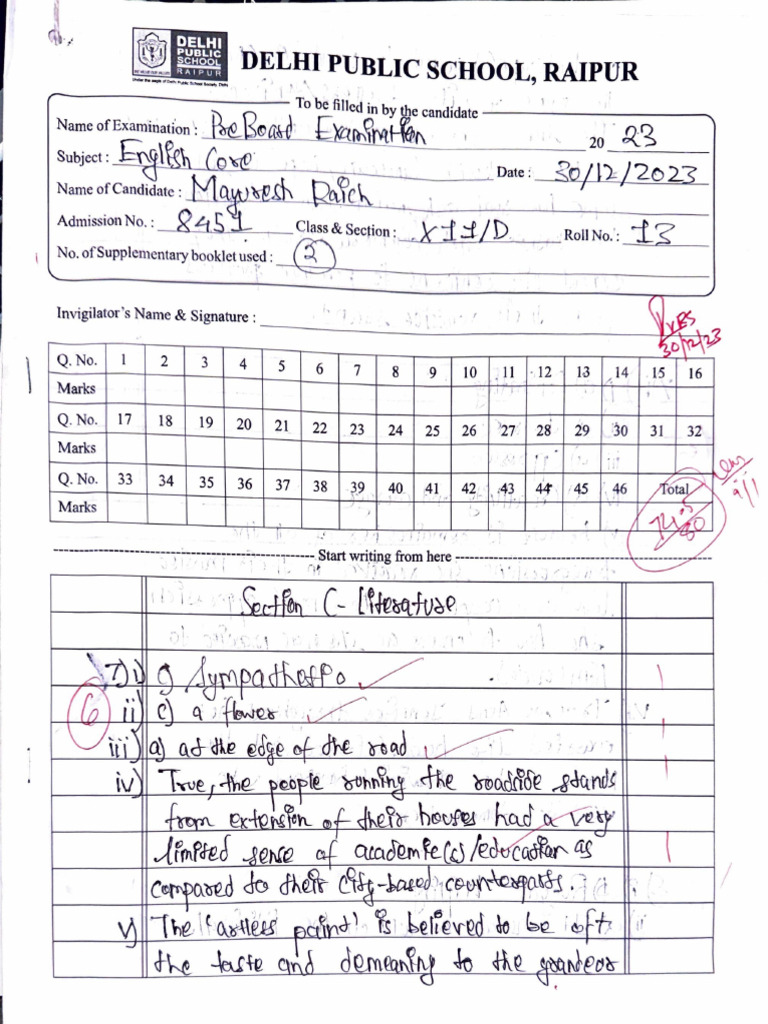 DELHI PUBLIC SCHOOL RAIPUR
Under the aegis of Delhi Public School Society, Delhi
DELHI PUBLIC SCHOOL, RAIPUR
To be filled in by the candidate
Name of Examination : Pre Board Examination 20 23
Subject : English Core Date : 30/12/2023
Name of Candidate : Mayuresh Raich
Admission No. : 8451 Class & Section : XII/D Roll No. : 13
No. of Supplementary booklet used : 2
Invigilator's Name & Signature :
30/12/23
Q. No. 1 2 3 4 5 6 7 8 9 10 11 12 13 14 15 16
Marks
Q. No. 17 18 19 20 21 22 23 24 25 26 27 28 29 30 31 32
Marks
Q. No. 33 34 35 36 37 38 39 40 41 42 43 44 45 46 Total
Marks 74.5/80
9/1
Start writing from here
Section C - Literature
7) i) Sympathetic 1
6
ii) c) a flower 1
iii) a) at the edge of the road 1
iv) True, the people running the roadside stands
from extension of their houses had a very
limited sense of academic(s)/education as 1
compared to their city-based counterparts.
v) The 'artless paint' is believed to be oft
the taste and demeaning to the grandeor